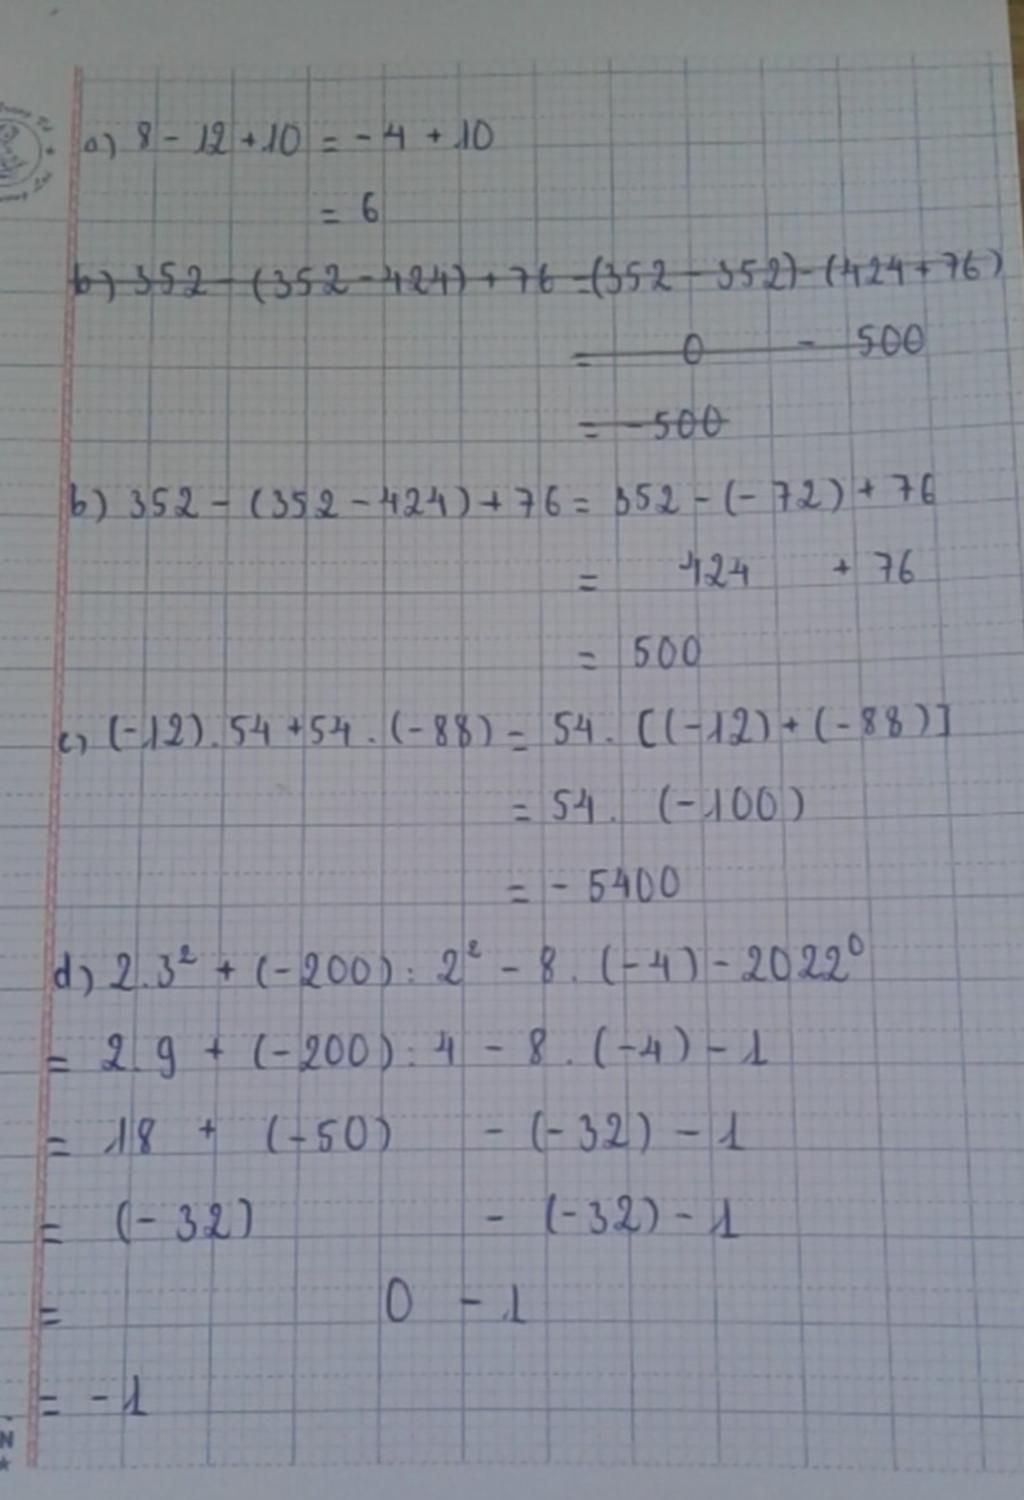 a) 8 - 12 + 10 = - 4 + 10
= 6
b) 352 - (352 - 424) + 76 = (352 - 352) - (424 + 76)
= 0 - 500
= - 500
b) 352 - (352 - 424) + 76 = 352 - (- 72) + 76
= 424 + 76
= 500
c) (-12) . 54 + 54 . (-88) = 54 . [(-12) + (-88)]
= 54 . (-100)
= - 5400
d) 2.3² + (-200) : 2² - 8 . (-4) - 2022⁰
= 2.9 + (-200) : 4 - 8 . (-4) - 1
= 18 + (-50) - (-32) - 1
= (- 32) - (-32) - 1
= 0 - 1
= - 1
N